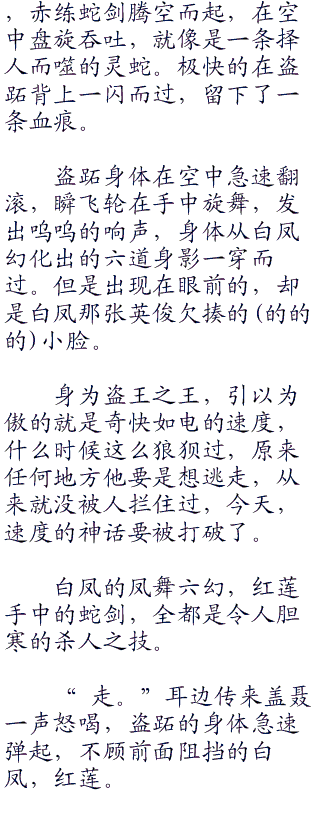 ，赤练蛇剑腾空而起，在空
中盘旋吞吐，就像是一条择
人而噬的灵蛇。极快的在盗
跖背上一闪而过，留下了一
条血痕。
盗跖身体在空中急速翻
滚，瞬飞轮在手中旋舞，发
出呜呜的响声，身体从白凤
幻化出的六道身影一穿而
过。但是出现在眼前的，却
是白凤那张英俊欠揍的(的的
的)小脸。
身为盗王之王，引以为
傲的就是奇快如电的速度，
什么时候这么狼狈过，原来
任何地方他要是想逃走，从
来就没被人拦住过，今天，
速度的神话要被打破了。
白凤的凤舞六幻，红莲
手中的蛇剑，全都是令人胆
寒的杀人之技。
“ 走。”耳边传来盖聂
一声怒喝，盗跖的身体急速
弹起，不顾前面阻挡的白
凤，红莲。